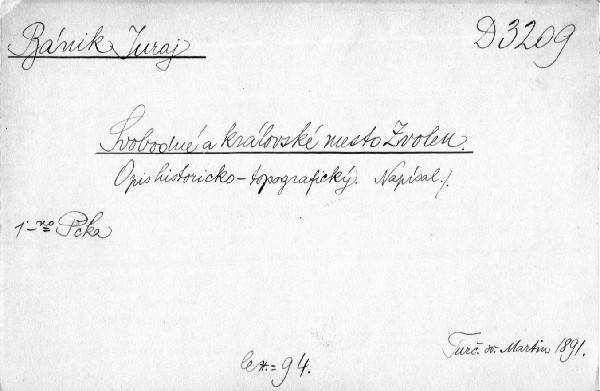 Bánik Juraj
D3209
Svobodné a kráľovské mesto Zvolen.
Opis historicko-topografický. Napísal /.
Turč. sv. Martin 1891.
= 94.